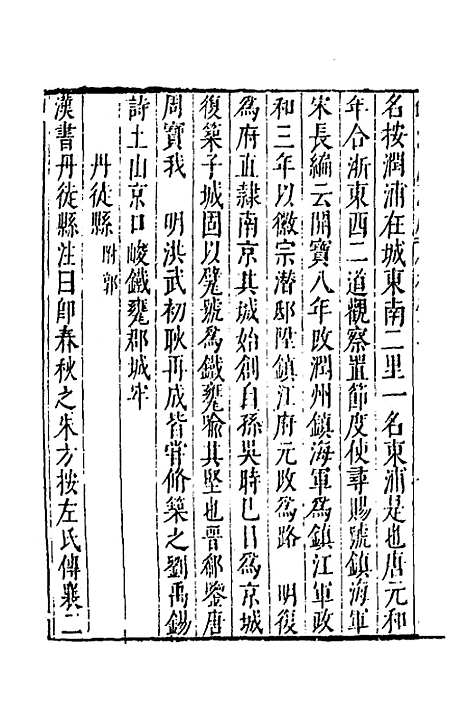 名按潤浦在城東南二里一名東浦是也唐元和
年合浙東西二道觀察置節度使尋賜號鎮海軍
宋長編云開寶八年改潤州鎮海軍爲鎮江軍政
和三年以徽宗潛邸陞鎮江府元改爲路　明復
爲府直隸南京其城始創自孫吳時已目爲京城
復築子城固以甓號爲鐵甕喻其堅也晉郗鑒唐
周寶我　明洪武初耿再成皆嘗修築之劉禹錫
詩土山京口峻鐵甕郡城牢
丹徒縣附郭
漢書丹徒縣注曰卽春秋之朱方按左氏傳襄二